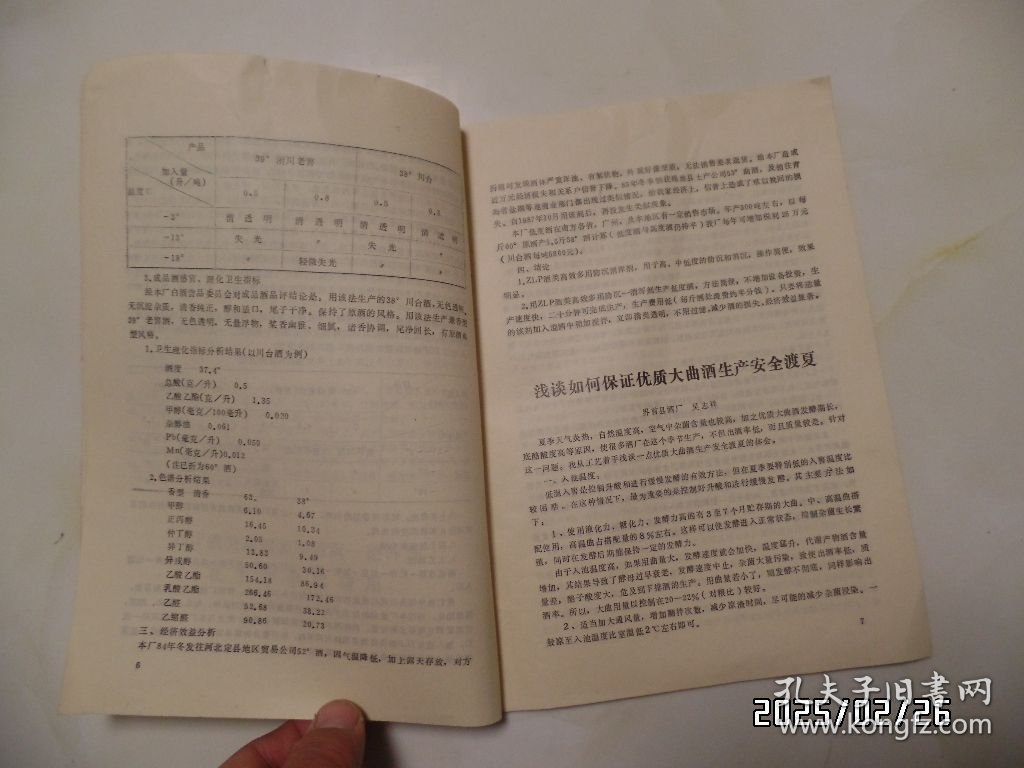 产品
39° 洲川老窖
38° 川台
加入量
(升/吨)
温度℃
0.5
0.8
0.5
0.8
-5°
清透明
清透明
清透明
清透明
-12°
失光
〃
失光
〃
-18°
轻微失光
〃
〃
3.成品酒感官、理化卫生指标
经本厂白酒尝品委员会对成品酒品评结论是,用该法生产的38°川台酒,无色透明,
无沉淀杂质,清香纯正,醇和适口,尾子干净。保持了原酒的风格。用该法生产兼香型
39°老窖酒,无色透明、无悬浮物,浆香幽雅、细腻,诸香协调,尾净回长,有原酒
型风格。
1.卫生理化指标分析结果(以川台酒为例)
酒度 37.4°
总酸(克/升) 0.5
乙酸乙酯(克/升) 1.35
甲醇(毫克/100毫升) 0.020
杂醇油 0.061
Pb(毫克/升) 0.050
Mn(毫克/升) 0.012
(注已折为60°酒)
2.色谱分析结果
香型 清香 62. 38°
甲醇 6.10 4.67
正丙醇 16.45 10.34
仲丁醇 2.05 1.08
异丁醇 13.83 9.49
异戊醇 50.60 30.16
乙酸乙酯 154.18 86.94
乳酸乙酯 266.46 172.46
乙醛 53.68 38.22
乙缩醛 90.86 20.73
三、经济效益分析
本厂84年冬发往河北定县地区贸易公司52°酒,因气温降低,加上露天存放,对方
6
失。自1987年10月用该剂后,再没发生类似现象。
本厂低度酒在南方各省,广州、及本地区有一定销售市场。年产300吨左右,以每
(川台酒每吨6800元)。
四、结论
明显。
浅谈如何保证优质大曲酒生产安全渡夏
界首县酒厂 吴志祥
夏季天气炎热,自然温度高,空气中杂菌含量也较高,加之优质大曲酒发酵期长,
底醅酸度高等原因,使很多酒厂在这个季节生产,不但出酒率低,而且质量较差。针对
这一问题。我从工艺着手浅谈一点优质大曲酒生产安全渡夏的体会。
一、入池温度:
低温入窖是控制升酸和进行缓慢发酵的有效方法,但在夏季要特别低的入窖温度比
较困难。在这种情况下,最为重要的是控制好升酸和进行缓慢发酵。其主要方法如
下:
1、使用液化力,糖化力,发酵力高的有3至7个月贮存期的大曲。中、高温曲搭
配使用,高温曲占搭配量的8%左右。这样可以使发酵进入正常状态,抑制杂菌生长繁
殖,同时在发酵后期能保持一定的发酵力。
由于入池温度高,如果用曲量大,发酵速度就会加快,温度猛升,代谢产物酒含量
增加,其结果导致了酵母过早衰老,发酵速度中止,杂菌大量污染,致使出酒率低,质
量差,酪子酸度大,危及到下排酒的生产。用曲量若小了,则发酵不彻底,同样影响出
酒率。所以,大曲用量以控制在20—22%(对粮比)较好。
2、适当加大通风量,增加翻拌次数,减少凉渣时间,尽可能的减少杂菌浸染。一
般凉至入池温度比室温低2℃左右即可。
7
孔夫子旧书网
2025/02/26
www.kongfz.com